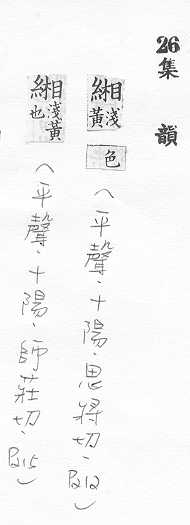 26集 韻
緗淺黃色（平聲．十陽．思將切．P.212）
緗淺黃也（平聲．十陽．師莊切．P.215）